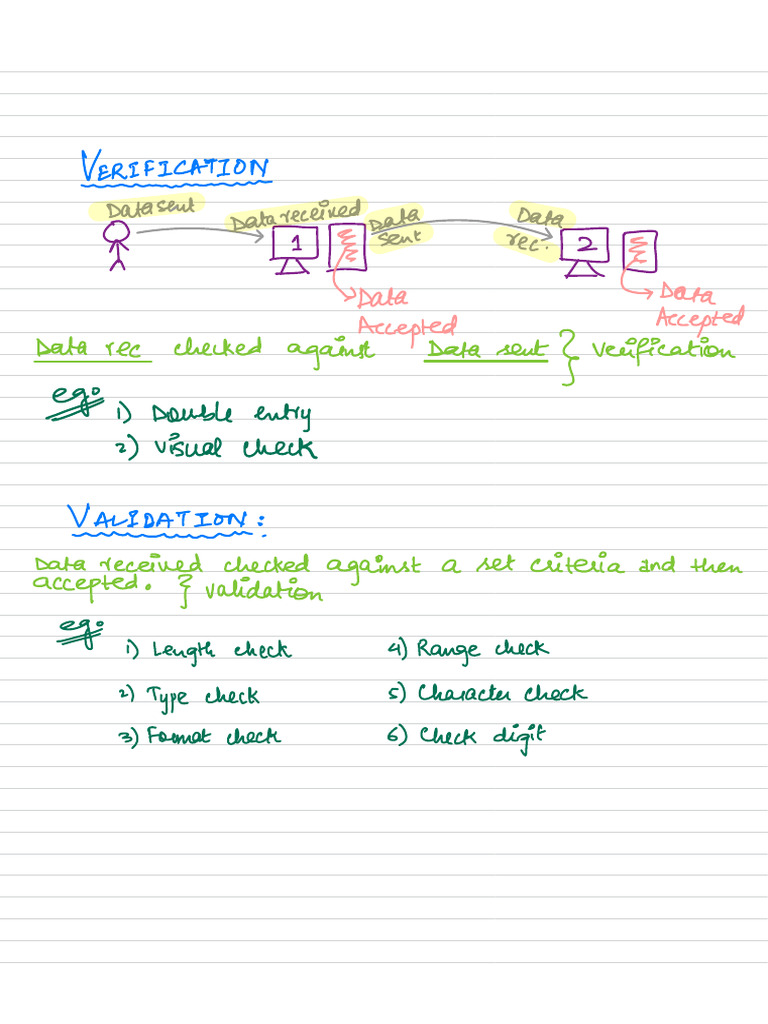 VERIFICATION
Data sent
Data received
Data sent
Data rec.
1
2
Data Accepted
Data Accepted
Data rec checked against Data sent } verification
eg:
1) Double entry
2) Visual check
VALIDATION:
Data received checked against a set criteria and then
accepted. } validation
eg:
1) Length check
2) Type check
3) Format check
4) Range check
5) Character check
6) Check digit